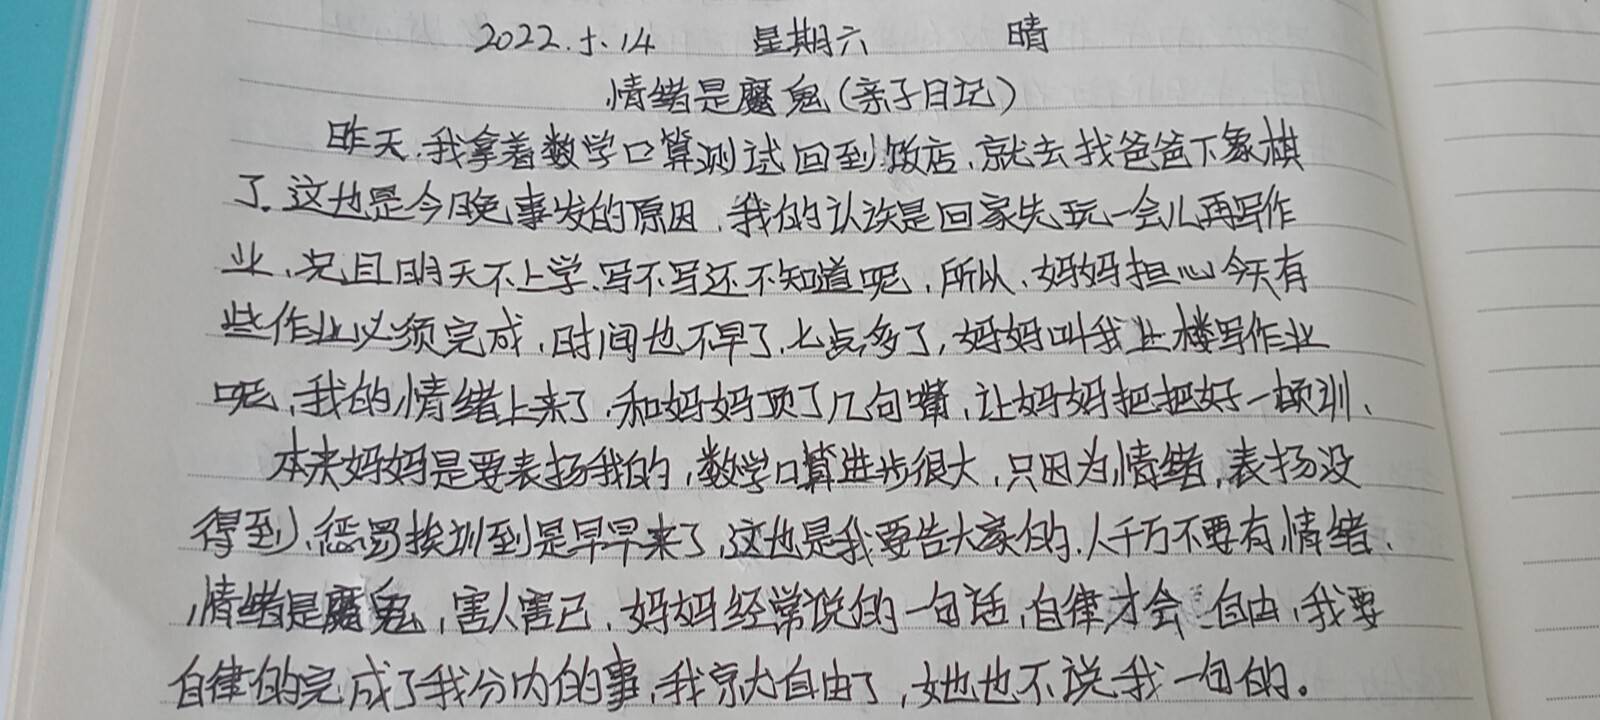 2022.5.14 星期六 晴
情绪是魔鬼(亲子日记)
昨天,我拿着数学口算测试回到饭店,就去找爸爸下象棋
了。这也是今晚事发的原因,我的认识是回家先玩一会儿再写作
业,况且明天不上学,写不写还不知道呢,所以,妈妈担心今天有
些作业必须完成,时间也不早了,七点多了,妈妈叫我上楼写作业
呢,我的情绪上来了,和妈妈顶了几句嘴,让妈妈把把好一顿训、
本来妈妈是要表扬我的,数学口算进步很大,只因为情绪,表扬没
得到,惩罚挨训到是早早来了,这也是我要告大家的,人千万不要有情绪、
情绪是魔鬼,害人害己,妈妈经常说的一句话,自律才会自由,我要
自律的完成了我分内的事,我就自由了,她也不说我一句的。